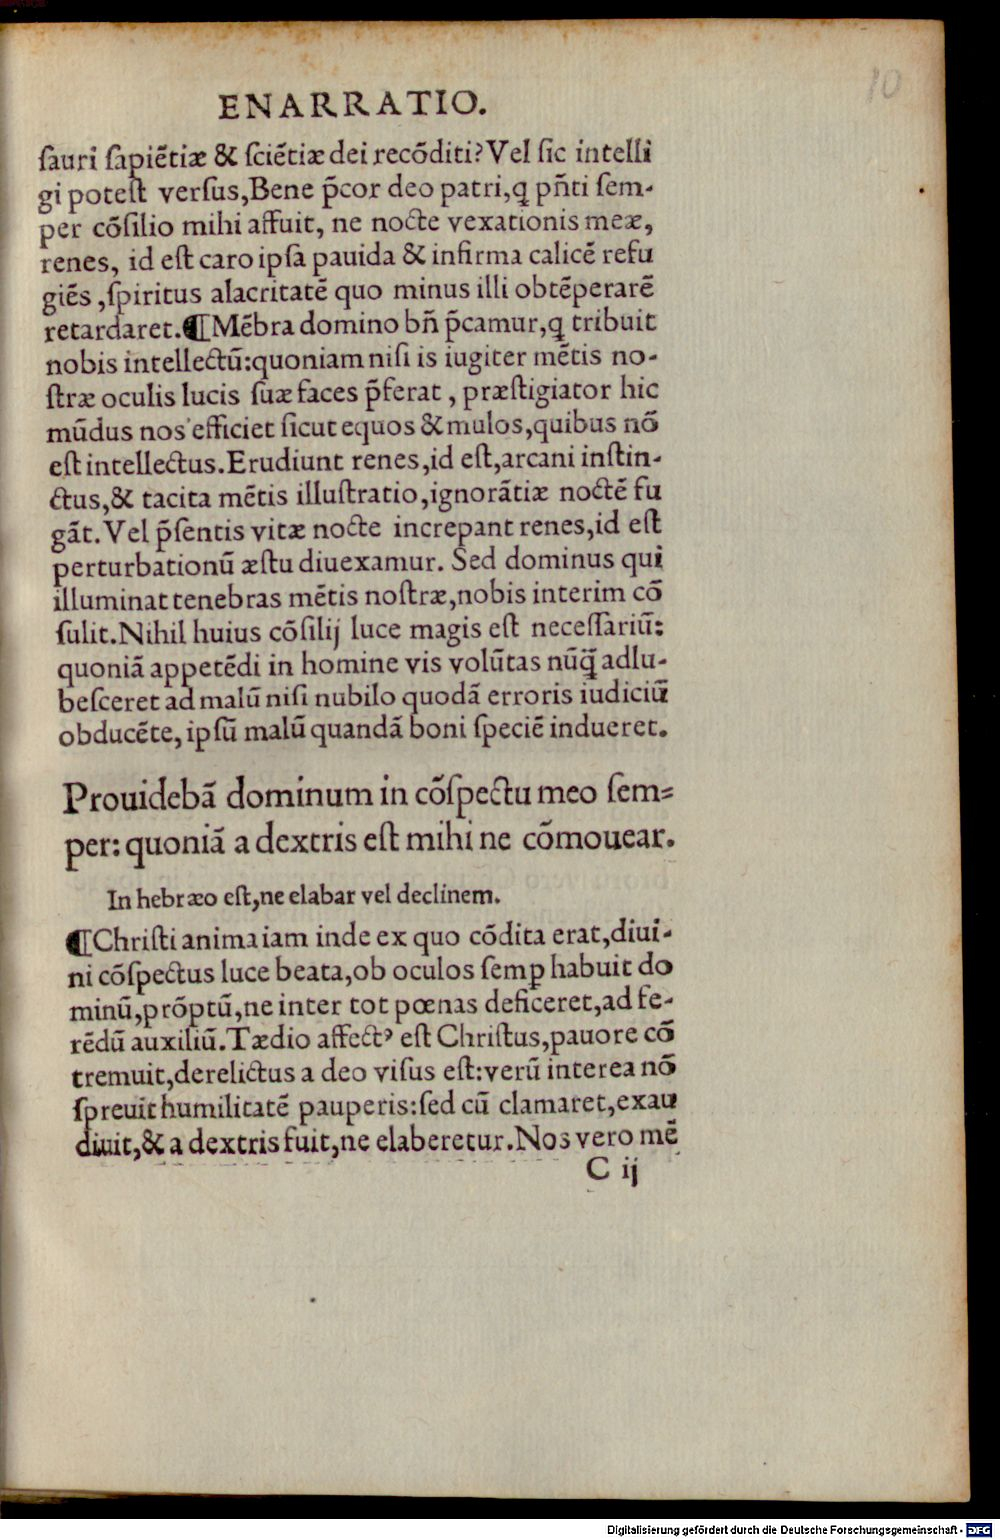 10
ENARRATIO.
sauri sapiẽtiæ & sciẽtiæ dei recõditi? Vel sic intelli
gi potest versus, Bene p̃cor deo patri, q̨ pñti sem-
per cõsilio mihi affuit, ne nocte vexationis meæ,
renes, id est caro ipsa pauida & infirma calicẽ refu
giẽs, spiritus alacritatẽ quo minus illi obtẽperarẽ
retardaret. ¶ Mẽbra domino bñ p̃camur, q̨ tribuit
nobis intellectũ: quoniam nisi is iugiter mẽtis no-
stræ oculis lucis suæ faces p̃ferat, præstigiator hic
mũdus nos efficiet sicut equos & mulos, quibus nõ
est intellectus. Erudiunt renes, id est, arcani instin-
ctus, & tacita mẽtis illustratio, ignorãtiæ noctẽ fu
gãt. Vel p̃sentis vitæ nocte increpant renes, id est
perturbationũ æstu diuexamur. Sed dominus qui
illuminat tenebras mẽtis nostræ, nobis interim cõ
sulit. Nihil huius cõsilij luce magis est necessariũ:
quoniã appetẽdi in homine vis volũtas nũq̃ adlu-
besceret ad malũ nisi nubilo quodã erroris iudiciũ
obducẽte, ipsũ malũ quandã boni speciẽ indueret.
Prouidebã dominum in cõspectu meo sem=
per: quoniã a dextris est mihi ne cõmouear.
In hebræo est, ne elabar vel declinem.
¶ Christi anima iam inde ex quo cõdita erat, diui-
ni cõspectus luce beata, ob oculos semꝑ habuit do
minũ, prõptũ, ne inter tot pœnas deficeret, ad fe-
rẽdũ auxiliũ. Tædio affectꝰ est Christus, pauore cõ
tremuit, derelictus a deo visus est: verũ interea nõ
spreuit humilitatẽ pauperis: sed cũ clamaret, exau
diuit, & a dextris fuit, ne elaberetur. Nos vero mẽ
C ij
Digitalisierung gefördert durch die Deutsche Forschungsgemeinschaft - DFG